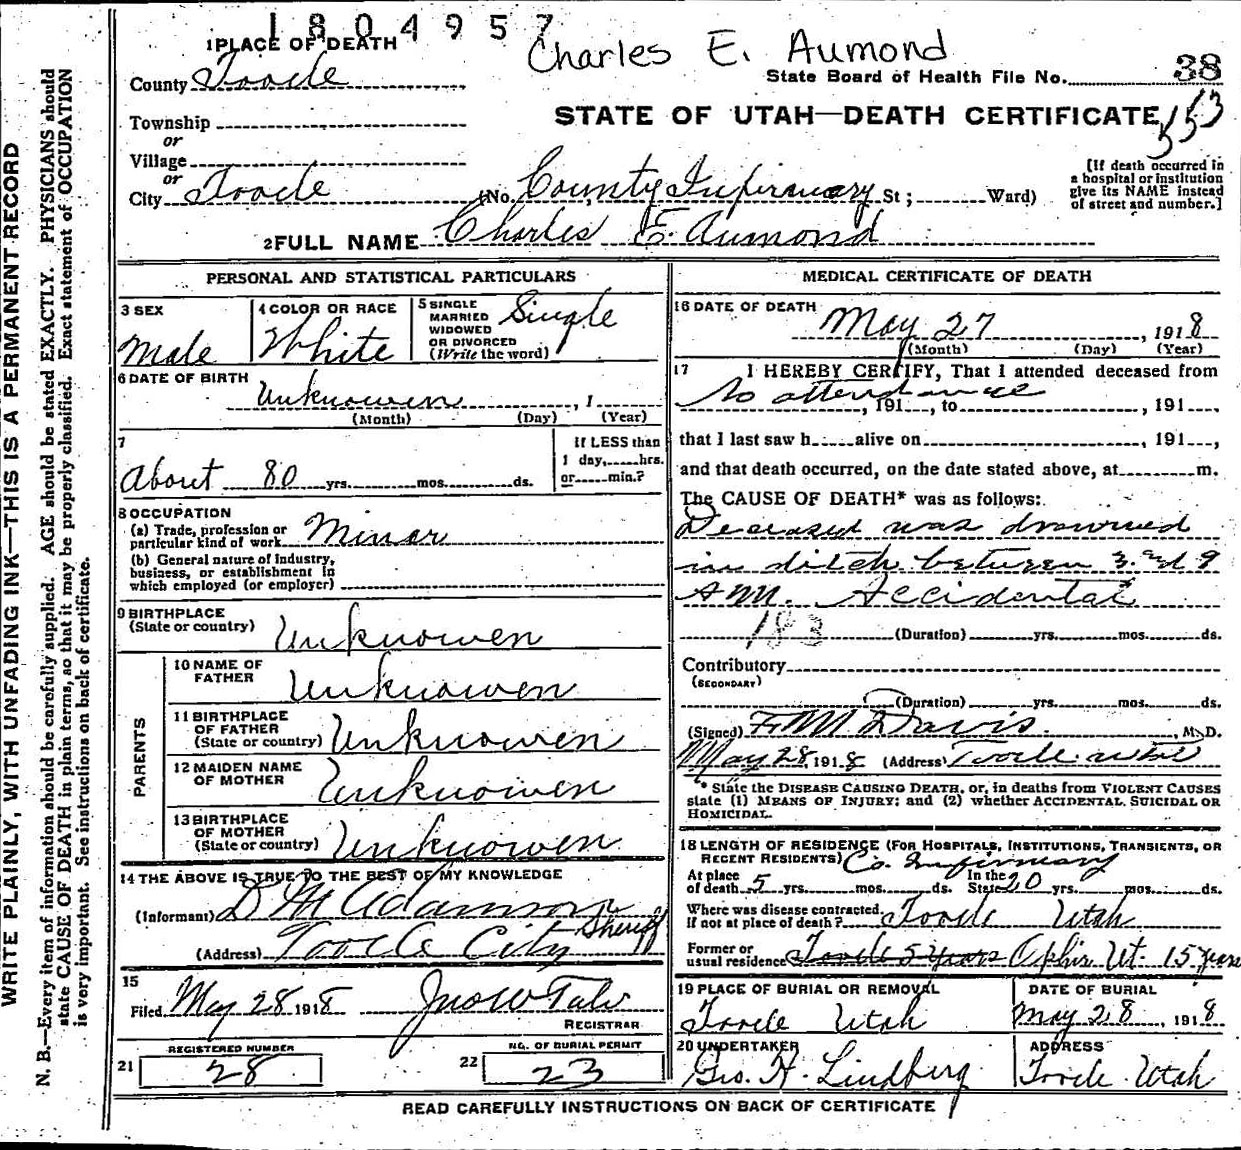 1804957
Charles E. Aumond
1 PLACE OF DEATH
County Tooele
State Board of Health File No. 38
353
STATE OF UTAH—DEATH CERTIFICATE
Township
or
Village
or
City Tooele (No. County Infirmary St; Ward)
[If death occurred in a hospital or institution give its NAME instead of street and number.]
2 FULL NAME Charles E. Aumond
PERSONAL AND STATISTICAL PARTICULARS
3 SEX Male
4 COLOR OR RACE White
5 SINGLE MARRIED WIDOWED OR DIVORCED (Write the word) Single
6 DATE OF BIRTH Unknowen , 1
(Month) (Day) (Year)
7
About 80 yrs. mos. ds.
If LESS than 1 day, hrs. or min.?
8 OCCUPATION
(a) Trade, profession or particular kind of work Miner
(b) General nature of Industry, business, or establishment in which employed (or employer)
9 BIRTHPLACE (State or country) Unknowen
PARENTS
10 NAME OF FATHER Unknowen
11 BIRTHPLACE OF FATHER (State or country) Unknowen
12 MAIDEN NAME OF MOTHER Unknowen
13 BIRTHPLACE OF MOTHER (State or country) Unknowen
14 THE ABOVE IS TRUE TO THE BEST OF MY KNOWLEDGE
(Informant) D M Adamson Sheriff
(Address) Tooele City
15
Filed May 28 1918
REGISTRAR
REGISTERED NUMBER
21 28
NO. OF BURIAL PERMIT
22 23
MEDICAL CERTIFICATE OF DEATH
16 DATE OF DEATH
May 27 , 1918
(Month) (Day) (Year)
17 I HEREBY CERTIFY, That I attended deceased from
No attendance , 191 , to , 191 ,
that I last saw h alive on , 191 ,
and that death occurred, on the date stated above, at m.
The CAUSE OF DEATH* was as follows:
Deceased was drowned
in ditch between 3 and 9
AM. Accidental
183 (Duration) yrs. mos. ds.
Contributory
(SECONDARY)
(Duration) yrs. mos. ds.
(Signed) F. M. Davis. , M.D.
May 28, 1918 (Address) Tooele Utah
* State the DISEASE CAUSING DEATH, or, in deaths from VIOLENT CAUSES
state (1) MEANS OF INJURY; and (2) whether ACCIDENTAL, SUICIDAL OR
HOMICIDAL.
18 LENGTH OF RESIDENCE (FOR HOSPITALS, INSTITUTIONS, TRANSIENTS, OR
RECENT RESIDENTS) Co. Infirmary
At place of death 5 yrs. mos. ds. In the State 20 yrs. mos. ds.
Where was disease contracted, if not at place of death? Tooele Utah
Former or usual residence Tooele 5 Years Ophir Ut. 15 years
19 PLACE OF BURIAL OR REMOVAL
Tooele Utah
DATE OF BURIAL
May 28 , 1918
20 UNDERTAKER
Geo. H. Lindberg
ADDRESS
Tooele Utah
READ CAREFULLY INSTRUCTIONS ON BACK OF CERTIFICATE
WRITE PLAINLY, WITH UNFADING INK—THIS IS A PERMANENT RECORD
N. B.—Every item of information should be carefully supplied. AGE should be stated EXACTLY. PHYSICIANS should
state CAUSE OF DEATH in plain terms, so that it may be properly classified. Exact statement of OCCUPATION
is very important. See instructions on back of certificate.